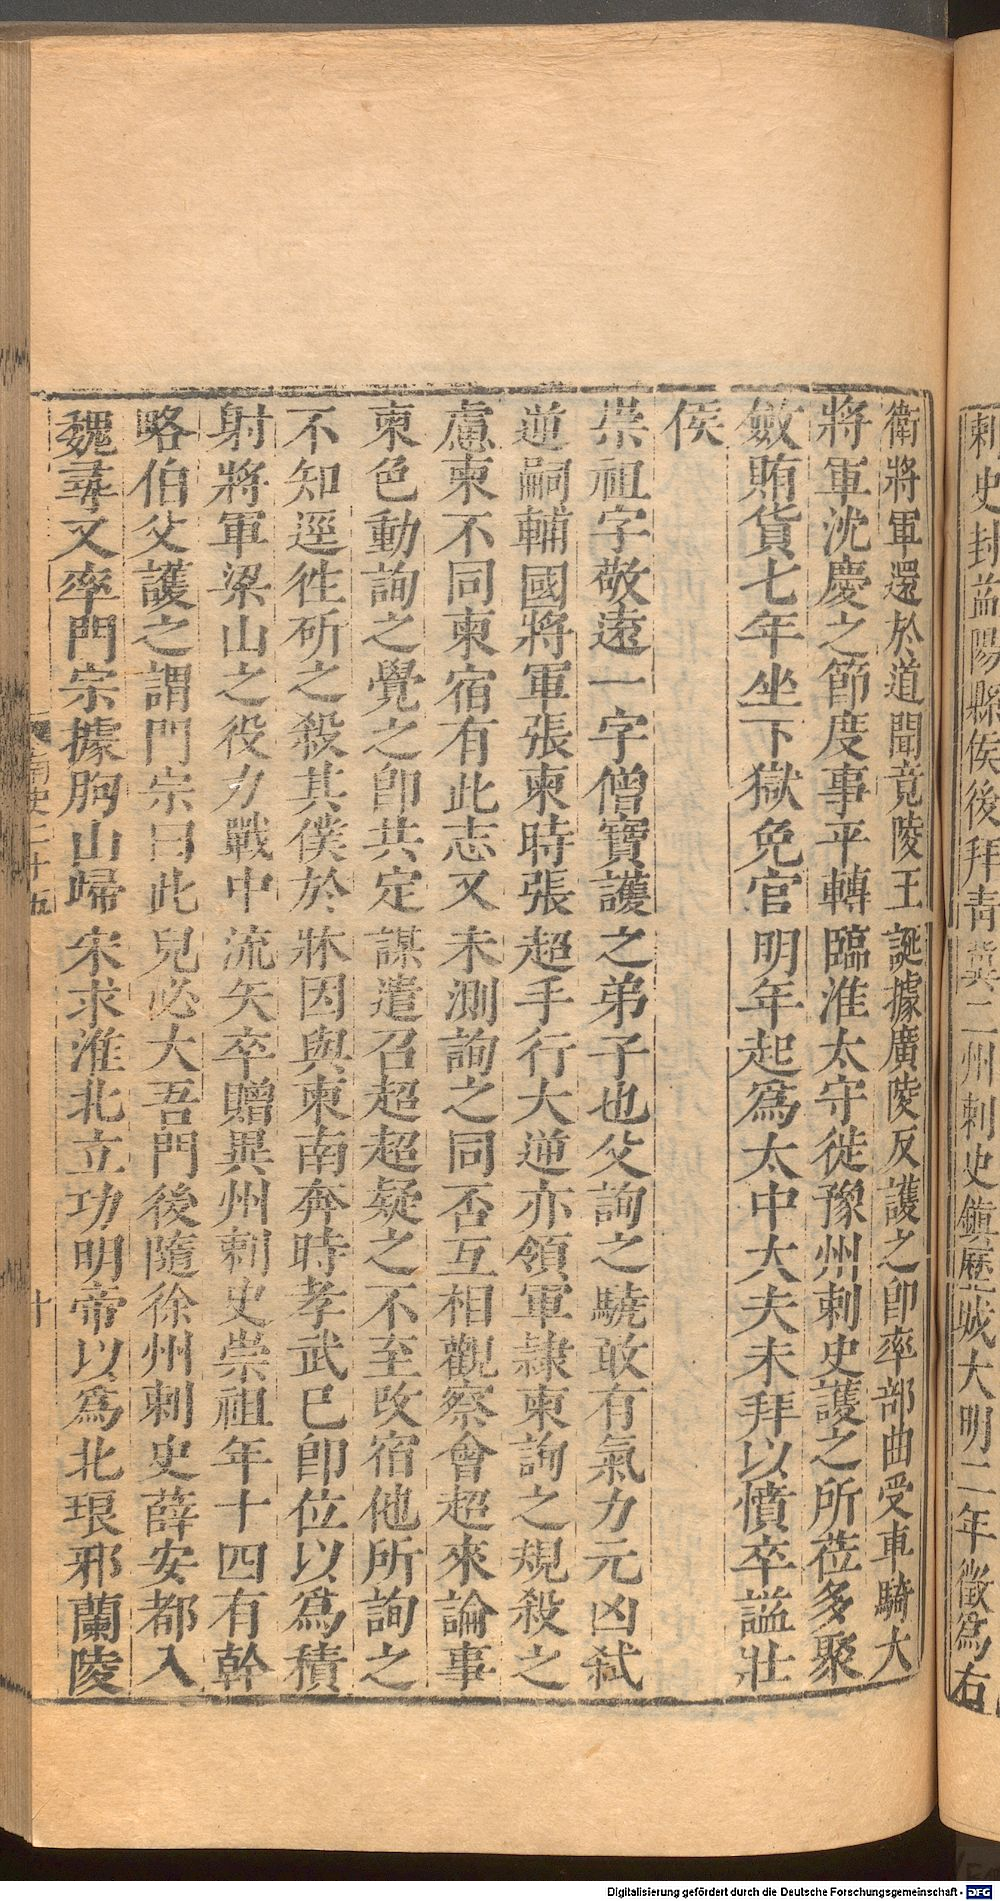 刺史封益陽縣侯後拜青冀二州刺史鎮歷城大明二年徵為右
衛將軍還於道聞竟陵王誕據廣陵反護之即率部曲受車騎大
將軍沈慶之節度事平轉臨淮太守徙豫州刺史護之所莅多聚
斂賄貨七年坐下獄免官明年起為太中大夫未拜以憤卒謚壯
侯
崇祖字敬遠一字僧寶護之弟子也父詢之驍敢有氣力元凶弒
逆嗣輔國將軍張柬時張超手行大逆亦領軍隸柬詢之規殺之
慮柬不同柬宿有此志又未測詢之同否互相觀察會超來論事
柬色動詢之覺之即共定謀遣召超超疑之不至改宿他所詢之
不知逕徃斫之殺其僕於牀因與柬南奔時孝武巳即位以為積
射將軍梁山之役力戰中流矢卒贈異州刺史崇祖年十四有幹
略伯父護之謂門宗曰此兒必大吾門後隨徐州刺史薛安都入
魏尋又率門宗據朐山歸宋求淮北立功明帝以為北琅邪蘭陵
南史二十五
十
Digitalisierung gefördert durch die Deutsche Forschungsgemeinschaft - DFG